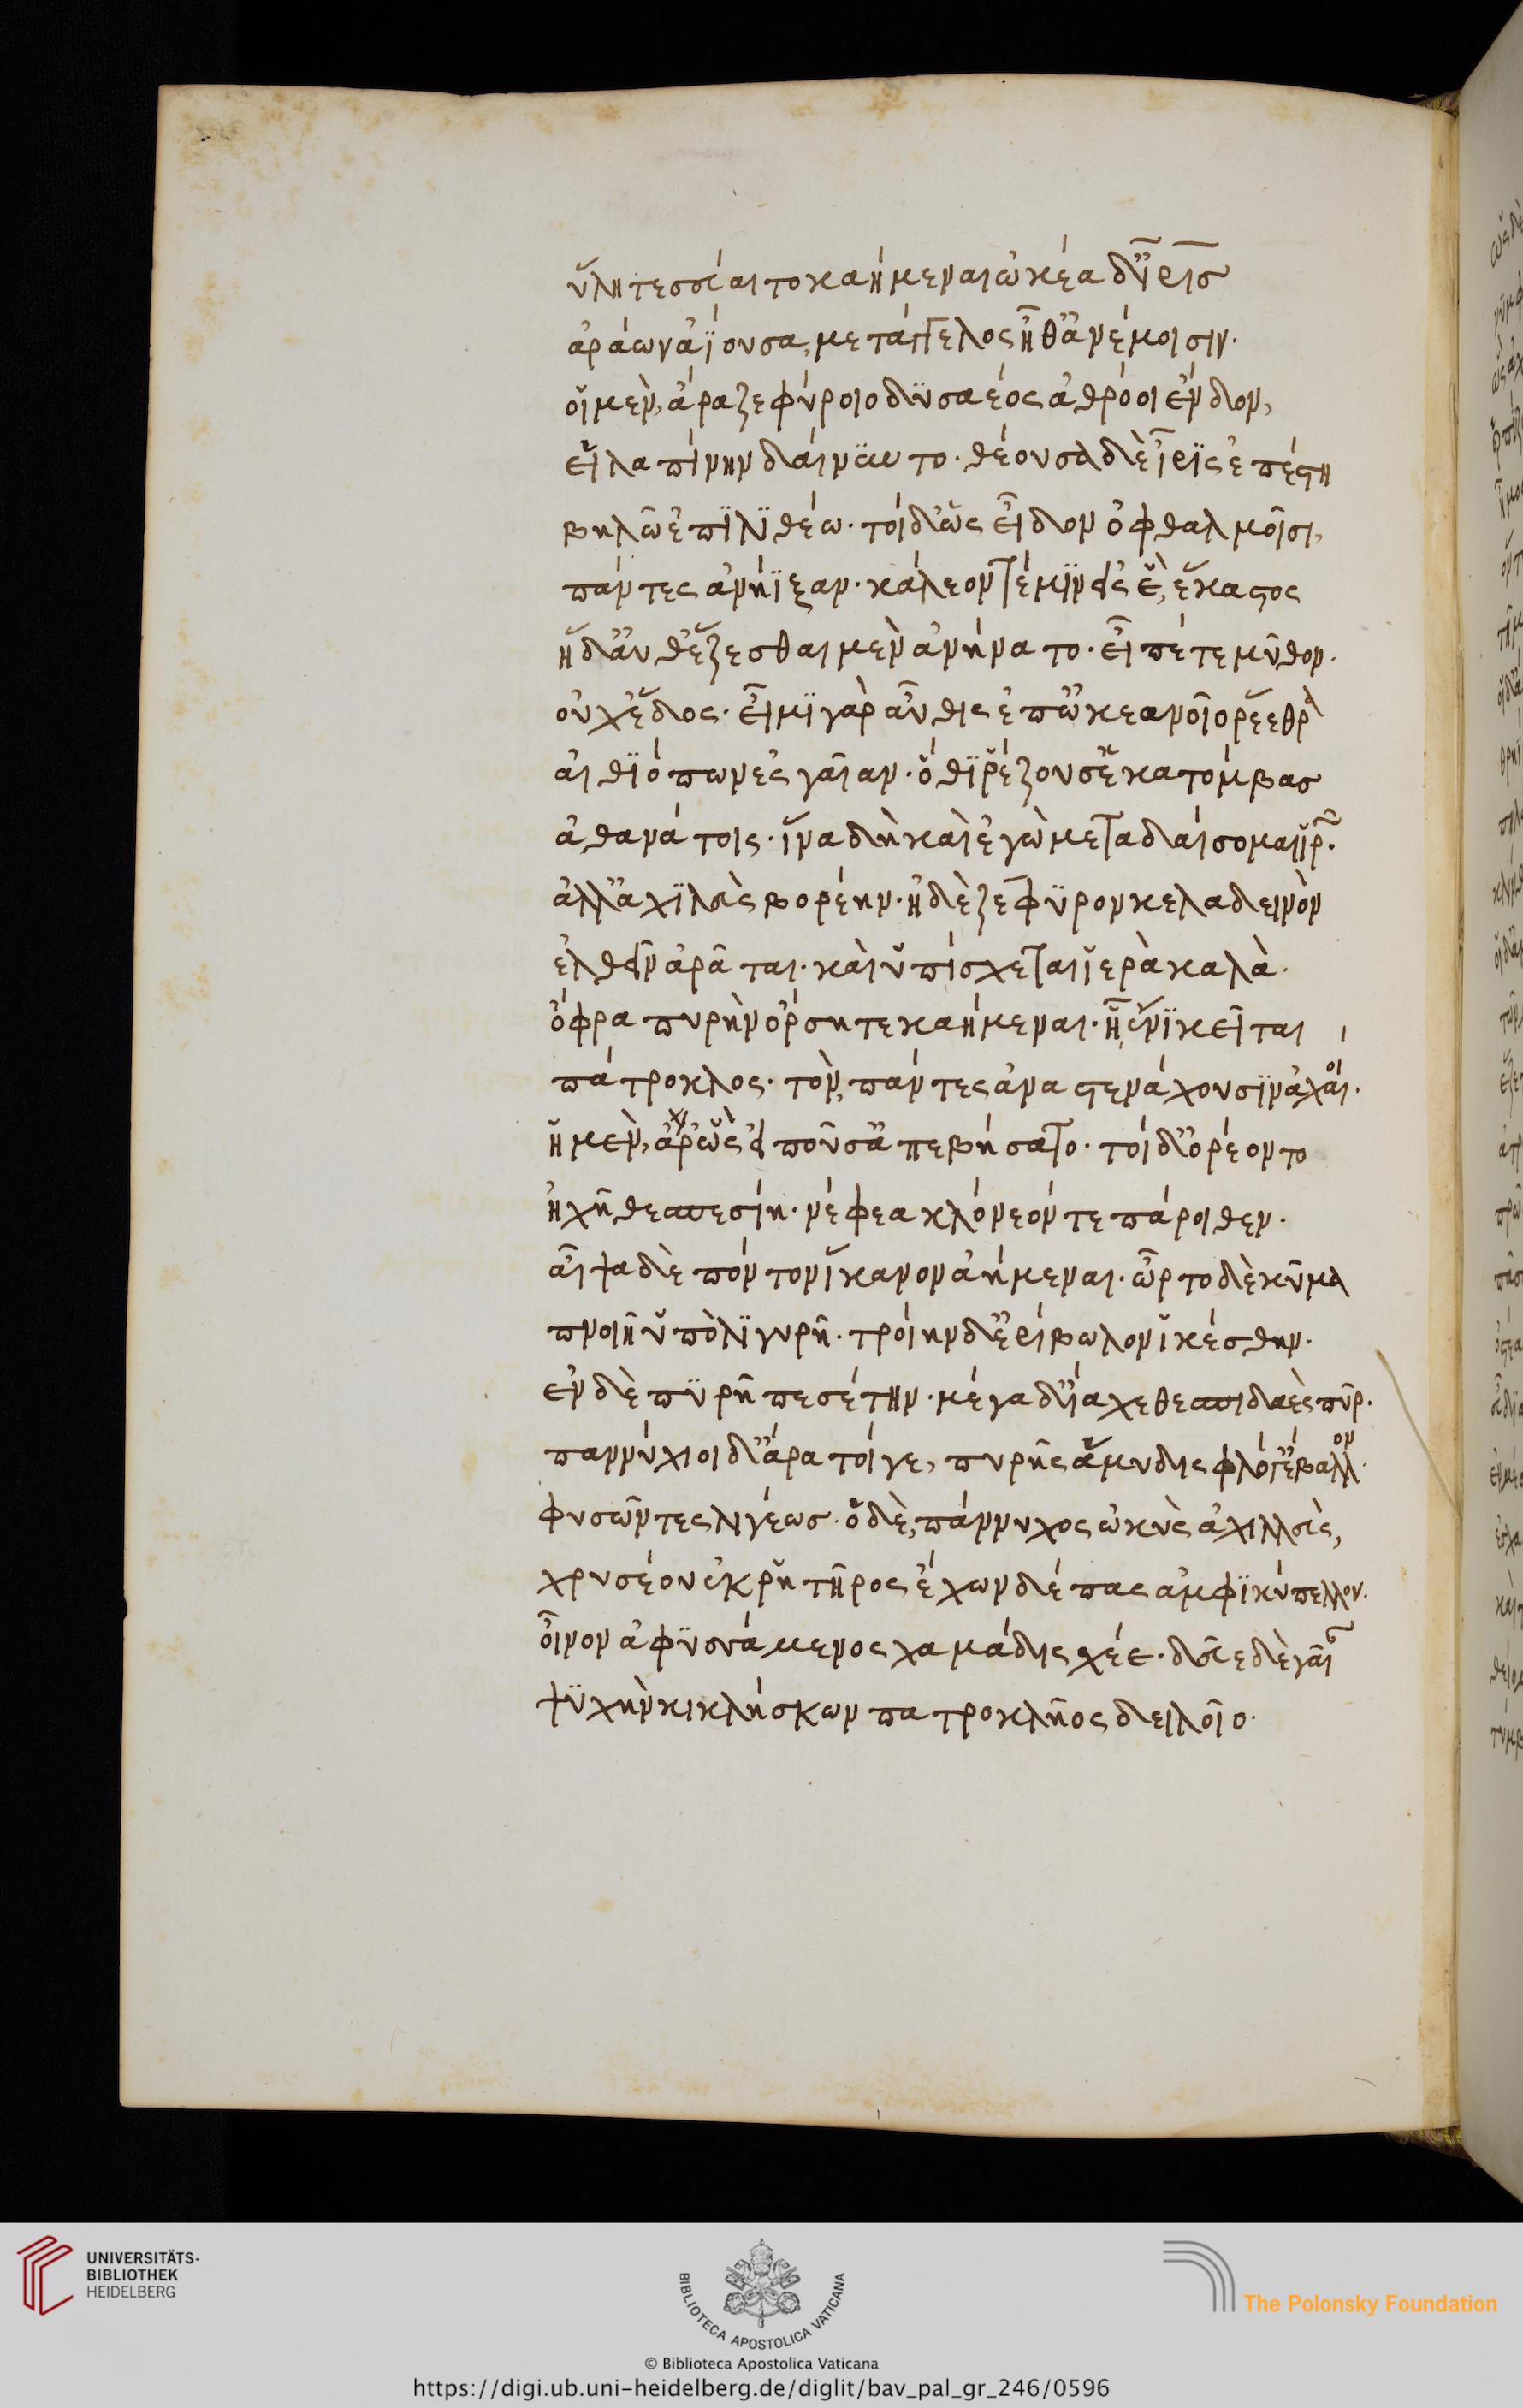 ὕλη τε σσεύαιτο καήμεναι ὠκέα δ' ἶρις
ἀράων ἀΐουσα, μετάγγελος ἦλθ' ἀνέμοισιν·
οἳ μὲν, ἄρα ζεφύροιο δυσαέος ἀθρόοι ἔνδον,
εἰλαπίνην δαίνυντο· θέουσα δὲ ἶρις ἐπέστη
βηλῶ ἐπὶ λιθέω· τοὶ δ' ὡς εἶδον ὀφθαλμοῖσι,
πάντες ἀνήϊξαν· κάλεόν τέ μιν εἰς ἓ, ἕκαστος
ἣ δ' αὖθ' ἕζεσθαι μὲν ἀνήνατο· εἶπέ τε μῦθον·
οὐχ ἕδος· εἶμι γὰρ αὖθις ἐπ' ὠκεανοῖο ῥέεθρα
αἰθιόπων ἐς γαῖαν· ὅθι ῥέζουσ' ἑκατόμβας
ἀθανάτοις· ἵνα δὴ καὶ ἐγὼ μεταδαίσομαι ἱρῶν·
ἀλλ' ἀχιλεὺς βορέην· ἠδὲ ζέφυρον κελαδεινὸν
ἐλθεῖν ἀρᾶται· καὶ ὑπίσχεται ἱερὰ καλὰ·
ὄφρα πυρὴν ὄρσητε καήμεναι· ἧ ἔνι κεῖται
πάτροκλος· τὸν, πάντες ἀναστενάχουσιν ἀχαιοί·
ἣ μὲν, ἂρ ὣς εἰποῦσ' ἀπεβήσατο· τοὶ δ' ὀρέοντο
ἠχῆ θεσπεσίη· νέφεα κλονέοντε πάροιθεν·
αἶψα δὲ πόντον ἵκανον ἀήμεναι· ὦρτο δὲ κῦμα
πνοιῆ ὕπο λιγυρῆ· τροίην δ' ἐρίβωλον ἱκέσθην·
ἐν δὲ πυρῆ πεσέτην· μέγα δ' ἴαχε θεσπιδαὲς πῦρ·
παννύχιοι δ' ἄρα τοί γε, πυρῆς ἄμυδις φλόγ' ἔβαλλον·
φυσῶντες λιγέως· ὃ δὲ, πάννυχος ὠκὺς ἀχιλλεὺς,
χρυσέου ἐκ κρητῆρος ἔχων δέπας ἀμφικύπελλον·
οἶνον ἀφυσσάμενος χαμάδις χέε· δεῦε δὲ γαῖαν
ψυχὴν κικλήσκων πατροκλῆος δειλοῖο·
UNIVERSITÄTS-
BIBLIOTHEK
HEIDELBERG
BIBLIOTECA APOSTOLICA VATICANA
The Polonsky Foundation
© Biblioteca Apostolica Vaticana
https://digi.ub.uni-heidelberg.de/diglit/bav_pal_gr_246/0596